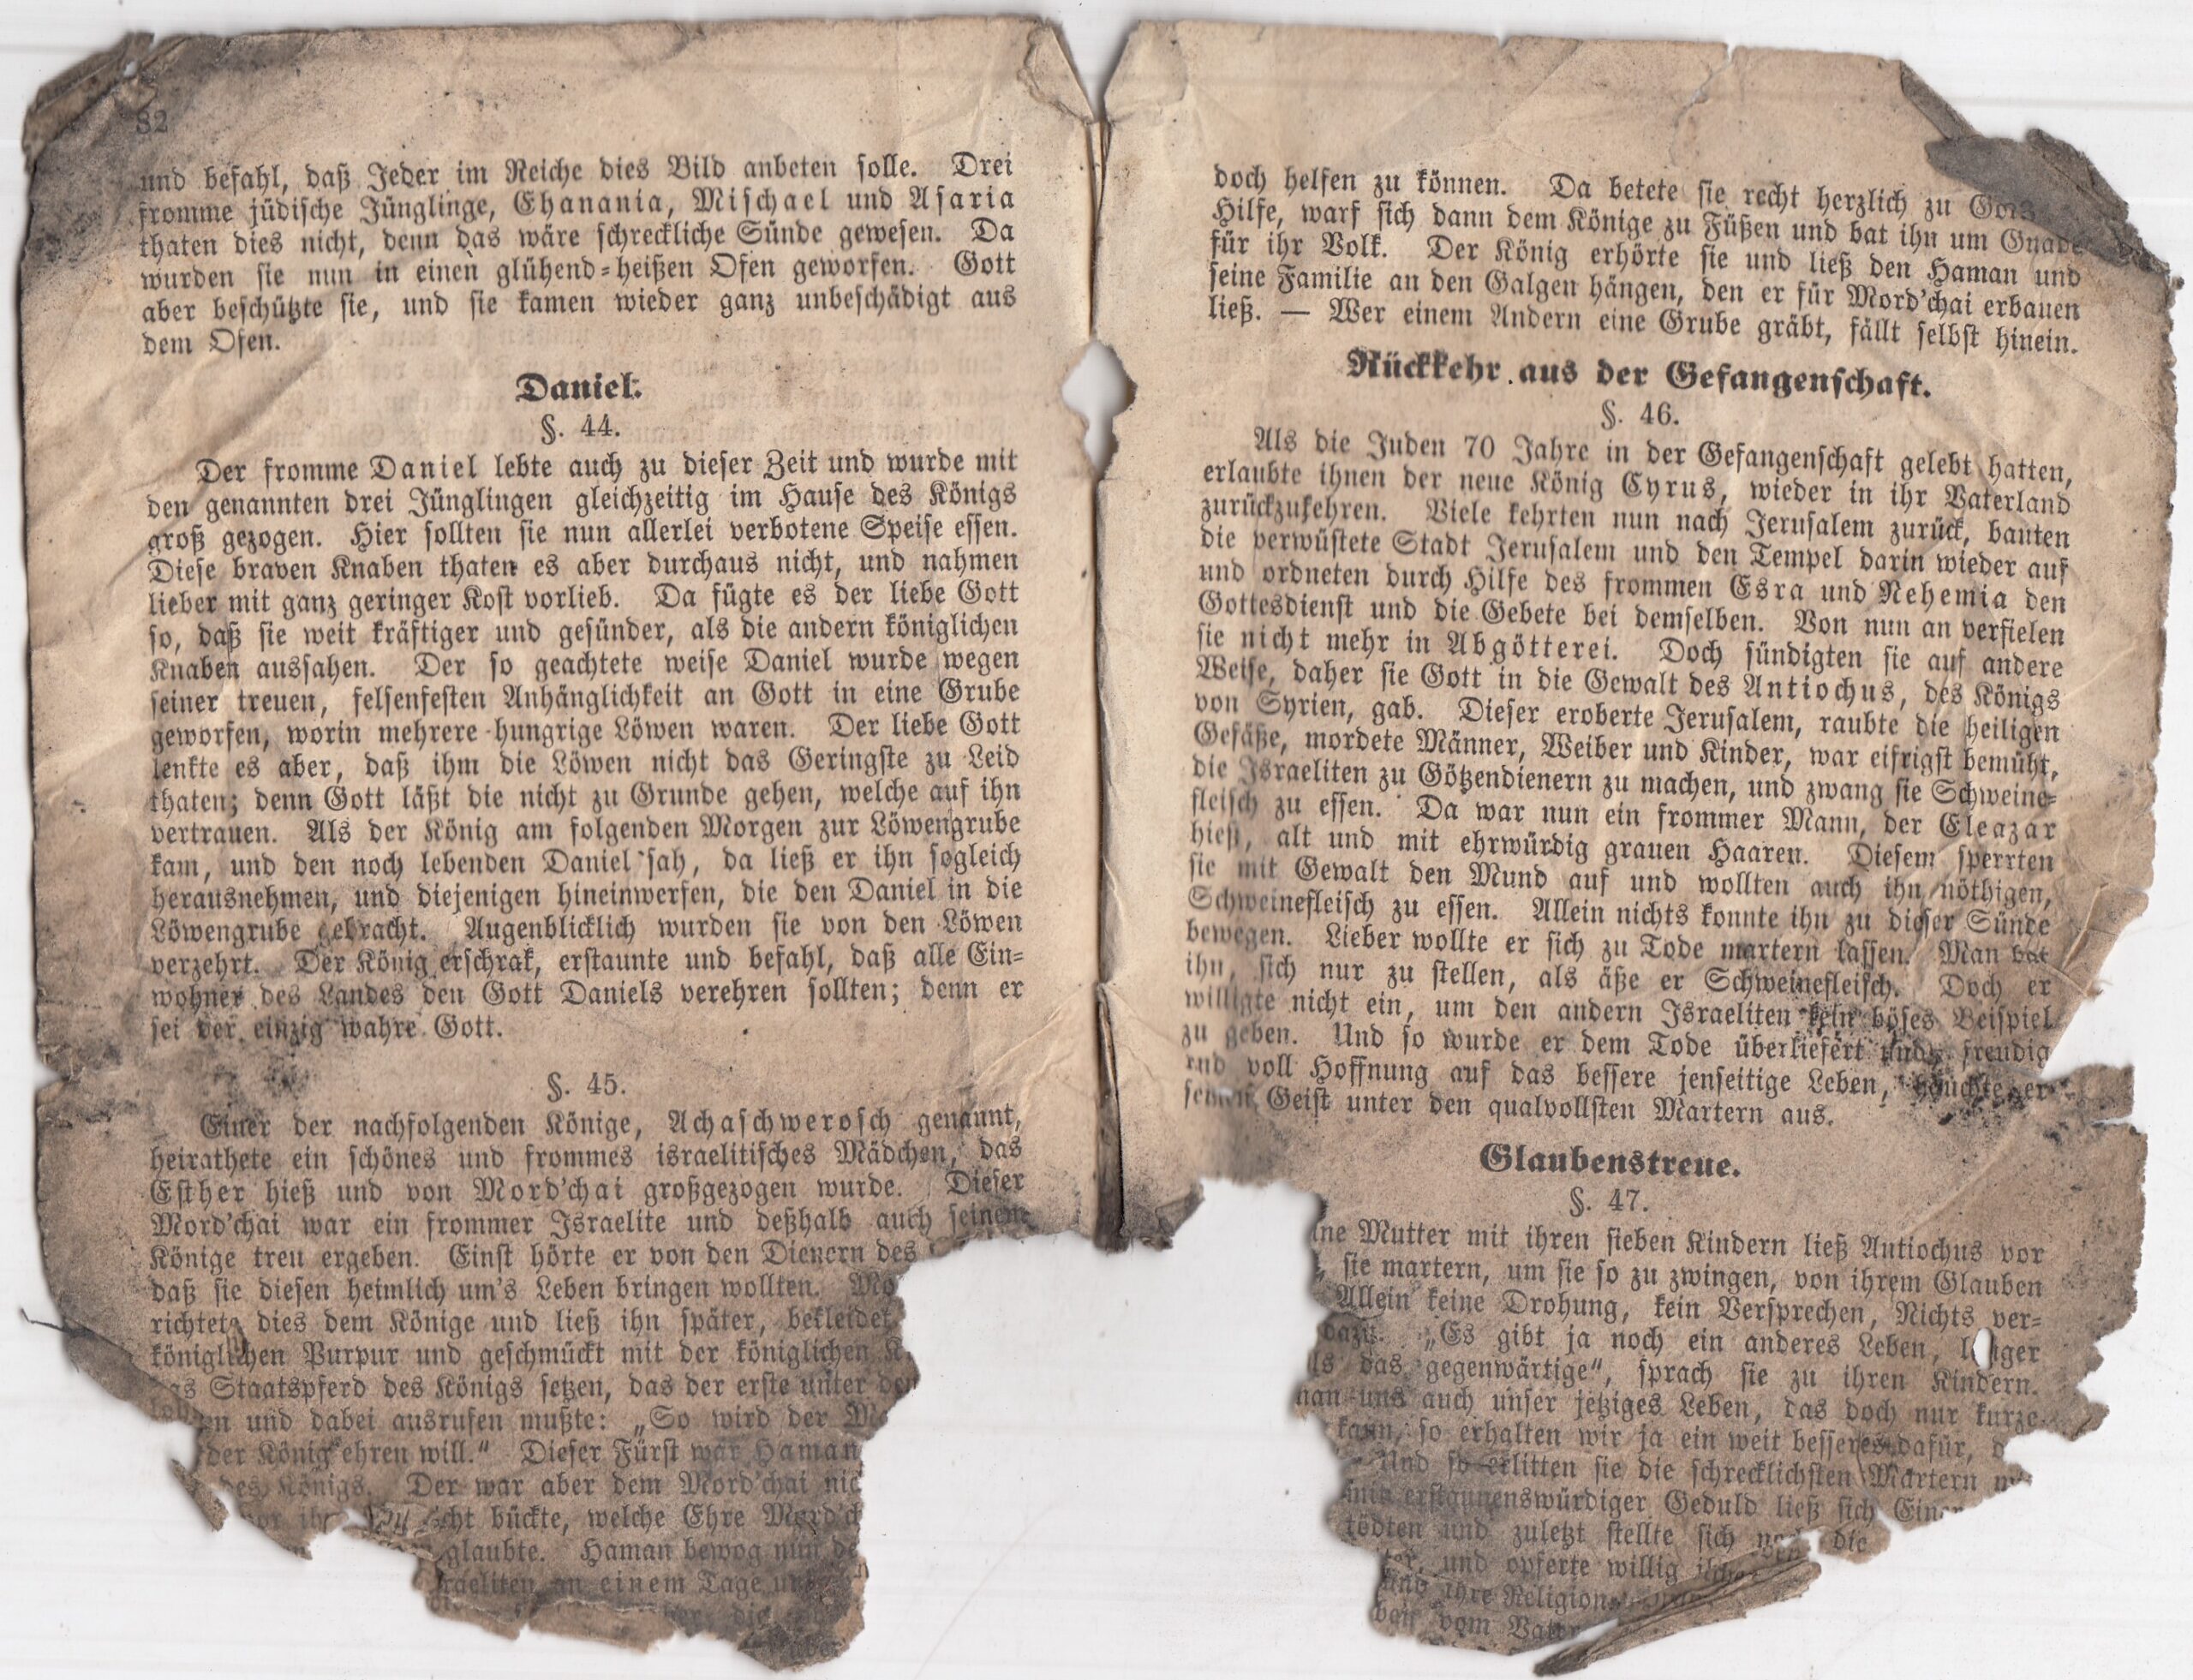 82
und befahl, daß Jeder im Reiche dies Bild anbeten solle. Drei
fromme jüdische Jünglinge, Chanania, Mischael und Asaria
thaten dies nicht, denn das wäre schreckliche Sünde gewesen. Da
wurden sie nun in einen glühend-heißen Ofen geworfen. Gott
aber beschützte sie, und sie kamen wieder ganz unbeschädigt aus
dem Ofen.
Daniel.
§. 44.
Der fromme Daniel lebte auch zu dieser Zeit und wurde mit
den genannten drei Jünglingen gleichzeitig im Hause des Königs
groß gezogen. Hier sollten sie nun allerlei verbotene Speise essen.
Diese braven Knaben thaten es aber durchaus nicht, und nahmen
lieber mit ganz geringer Kost vorlieb. Da fügte es der liebe Gott
so, daß sie weit kräftiger und gesünder, als die andern königlichen
Knaben aussahen. Der so geachtete weise Daniel wurde wegen
seiner treuen, felsenfesten Anhänglichkeit an Gott in eine Grube
geworfen, worin mehrere hungrige Löwen waren. Der liebe Gott
lenkte es aber, daß ihm die Löwen nicht das Geringste zu Leid
thaten; denn Gott läßt die nicht zu Grunde gehen, welche auf ihn
vertrauen. Als der König am folgenden Morgen zur Löwengrube
kam, und den noch lebenden Daniel sah, da ließ er ihn sogleich
herausnehmen, und diejenigen hineinwerfen, die den Daniel in die
Löwengrube gebracht. Augenblicklich wurden sie von den Löwen
verzehrt. Der König erschrak, erstaunte und befahl, daß alle Ein-
wohner des Landes den Gott Daniels verehren sollten; denn er
sei der einzig wahre Gott.
§. 45.
Einer der nachfolgenden Könige, Achaschwerosch genannt,
heirathete ein schönes und frommes israelitisches Mädchen, das
Esther hieß und von Mord'chai großgezogen wurde. Dieser
Mord'chai war ein frommer Israelite und deßhalb auch seinem
Könige treu ergeben. Einst hörte er von den Dienern des
daß sie diesen heimlich um's Leben bringen wollten.
richtete dies dem Könige und ließ ihn später, bekleidet
königlichen Purpur und geschmückt mit der königlichen
Staatspferd des Königs setzen, das der erste unter den
und dabei ausrufen mußte: „So wird der
der König ehren will.“ Dieser Fürst war Haman
des Königs. Der war aber dem Mord'chai
bückte, welche Ehre
glaubte. Haman bewog nun
an einem Tage
doch helfen zu können. Da betete sie recht herzlich zu
Hilfe, warf sich dann dem Könige zu Füßen und bat ihn um Gnade
für ihr Volk. Der König erhörte sie und ließ den Haman und
seine Familie an den Galgen hängen, den er für Mord'chai erbauen
ließ. — Wer einem Andern eine Grube gräbt, fällt selbst hinein.
Rückkehr aus der Gefangenschaft.
§. 46.
Als die Juden 70 Jahre in der Gefangenschaft gelebt hatten,
erlaubte ihnen der neue König Cyrus, wieder in ihr Vaterland
zurückzukehren. Viele kehrten nun nach Jerusalem zurück, bauten
die verwüstete Stadt Jerusalem und den Tempel darin wieder auf
und ordneten durch Hilfe des frommen Esra und Nehemia den
Gottesdienst und die Gebete bei demselben. Von nun an verfielen
sie nicht mehr in Abgötterei. Doch sündigten sie auf andere
Weise, daher sie Gott in die Gewalt des Antiochus, des Königs
von Syrien, gab. Dieser eroberte Jerusalem, raubte die heiligen
Gefäße, mordete Männer, Weiber und Kinder, war eifrigst bemüht,
die Israeliten zu Götzendienern zu machen, und zwang sie Schweine-
fleisch zu essen. Da war nun ein frommer Mann, der Eleazar
hieß, alt und mit ehrwürdig grauen Haaren. Diesem sperrten
sie mit Gewalt den Mund auf und wollten auch ihn nöthigen,
Schweinefleisch zu essen. Allein nichts konnte ihn zu dieser Sünde
bewegen. Lieber wollte er sich zu Tode martern lassen. Man bat
ihn, sich nur zu stellen, als äße er Schweinefleisch. Doch er
willigte nicht ein, um den andern Israeliten kein böses Beispiel
zu geben. Und so wurde er dem Tode überliefert und freudig
und voll Hoffnung auf das bessere jenseitige Leben, hauchte er
seinen Geist unter den qualvollsten Martern aus.
Glaubenstreue.
§. 47.
Mutter mit ihren sieben Kindern ließ Antiochus vor
sie martern, um sie so zu zwingen, von ihrem Glauben
Allein keine Drohung, kein Versprechen, Nichts ver-
dazu. „Es gibt ja noch ein anderes Leben,
das gegenwärtige“, sprach sie zu ihren Kindern.
uns auch unser jetziges Leben, das doch nur kurze
kann, so erhalten wir ja ein weit besseres dafür,
Und so erlitten sie die schrecklichsten Martern
erstaunenswürdiger Geduld ließ sich
tödten und zuletzt stellte sich noch die
und opferte willig
und ihre Religion
vom